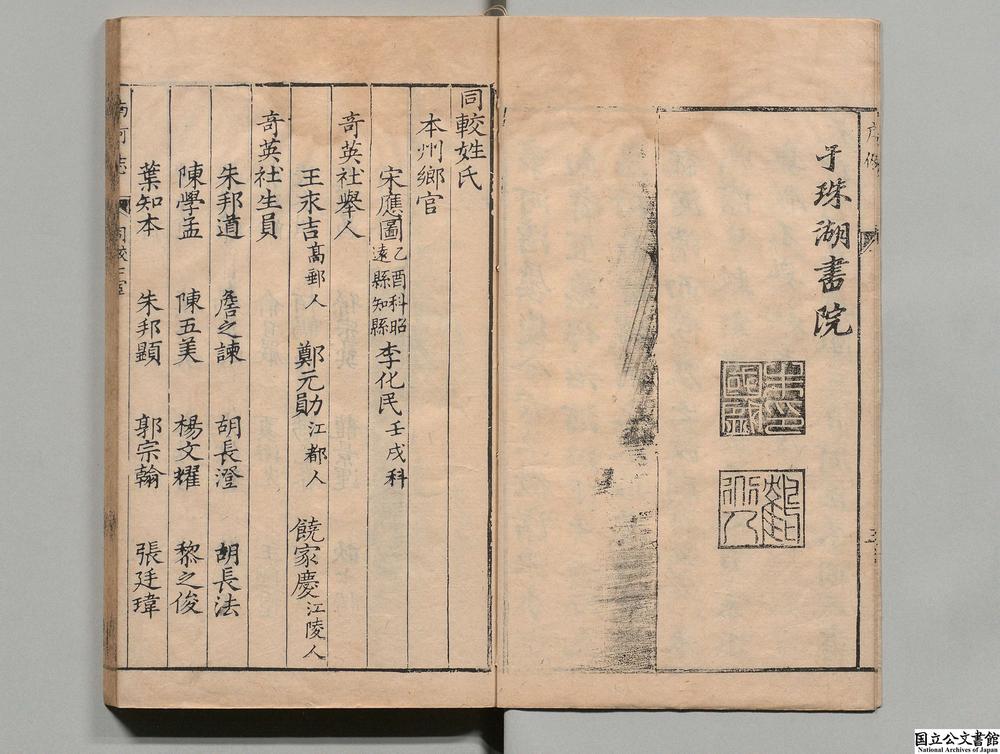 于珠湖書院
同較姓氏
本州鄉官
宋應圖乙酉科昭遠縣知縣 李化民壬戌科
奇英社舉人
王永吉高郵人 鄭元勛江都人 饒家慶江陵人
奇英社生員
朱邦道 詹之諫 胡長澄 胡長法
陳學孟 陳五美 楊文耀 黎之俊
葉知本 朱邦顯 郭宗翰 張廷瑋
南河志
国立公文書館
National Archives of Japan